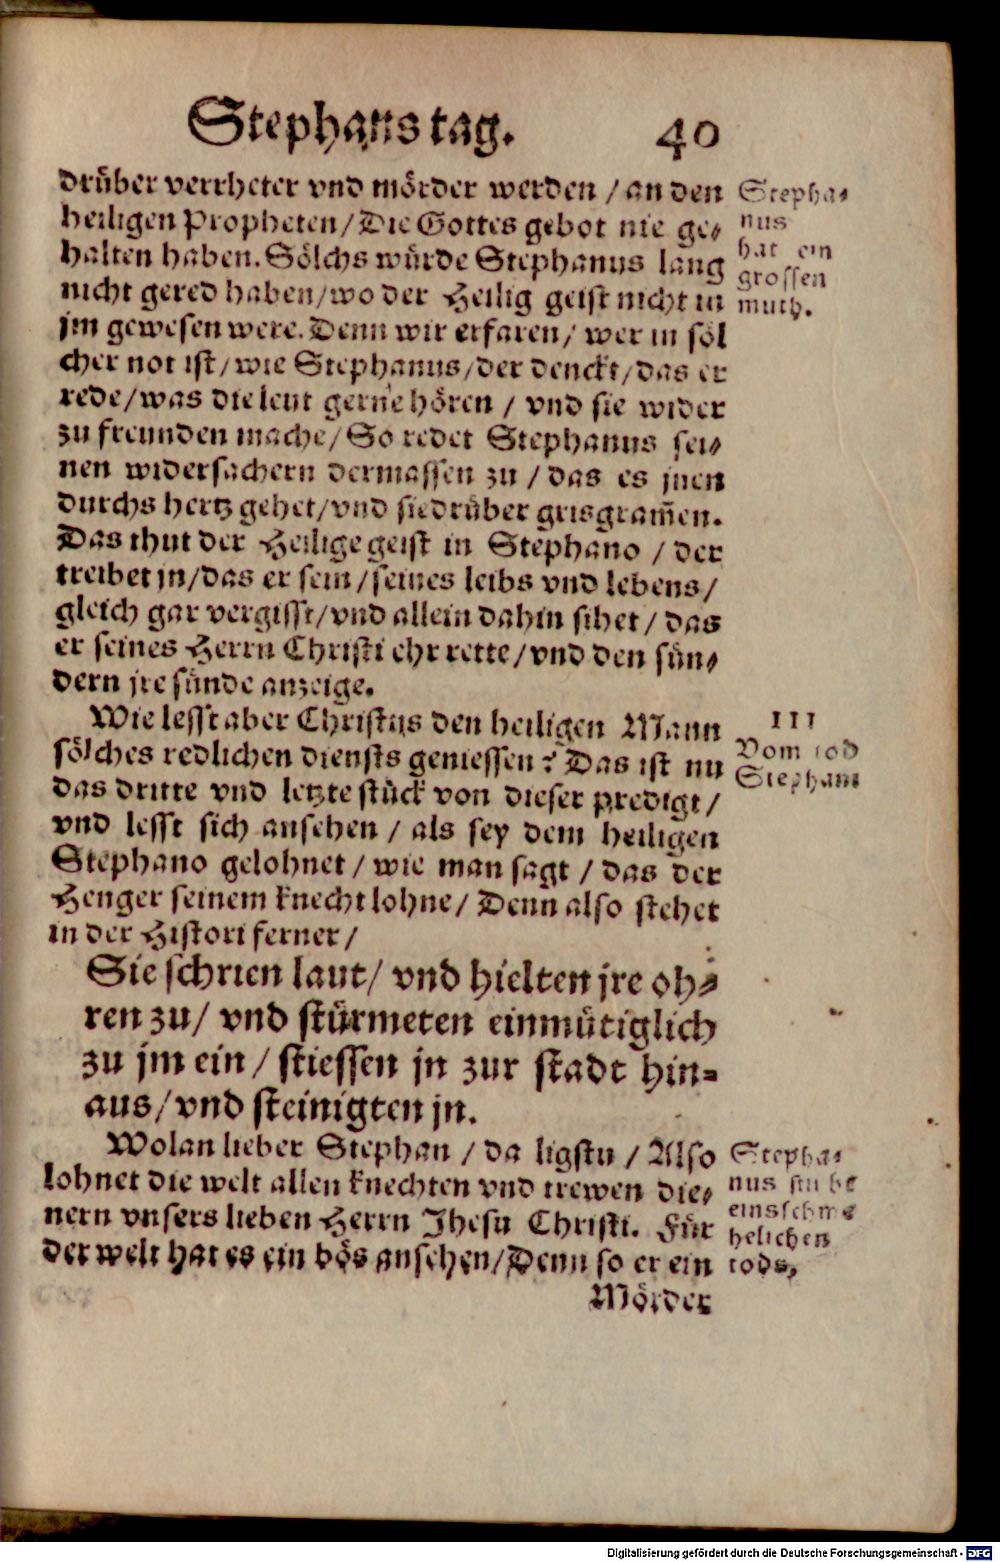 Stephans tag. 40
drüber verrheter vnd mörder werden / an den
heiligen Propheten / Die Gottes gebot nie ge-
halten haben. Sölchs würde Stephanus lang
nicht gered haben / wo der Heilig geist nicht in
jm gewesen were. Denn wir erfaren / wer in söl
cher not ist / wie Stephanus / der denckt / das er
rede / was die leut gerne hören / vnd sie wider
zu freunden mache / So redet Stephanus sei-
nen widersachern dermassen zu / das es jnen
durchs hertz gehet / vnd sie drüber grisgram̃en.
Das thut der Heilige geist in Stephano / der
treibet jn / das er sein / seines leibs vnd lebens /
gleich gar vergisst / vnd allein dahin sihet / das
er seines Herrn Christi ehr rette / vnd den sün-
dern jre sünde anzeige.
Stepha-
nus
hat ein
grossen
muth.
Wie lesst aber Christus den heiligen Mann
sölches redlichen diensts geniessen? Das ist nu
das dritte vnd letzte stück von dieser predigt /
vnd lesst sich ansehen / als sey dem heiligen
Stephano gelohnet / wie man sagt / das der
Henger seinem knecht lohne / Denn also stehet
in der Histori ferner /
III
Vom tod
Stephani
Sie schrien laut / vnd hielten jre oh-
ren zu / vnd stürmeten einmütiglich
zu jm ein / stiessen jn zur stadt hin-
aus / vnd steinigten jn.
Wolan lieber Stephan / da ligstu / Also
lohnet die welt allen knechten vnd trewen die-
nern vnsers lieben Herrn Jhesu Christi. Für
der welt hat es ein bös ansehen / Denn so er ein
Mörder
Stepha-
nus stirbt
eins schme
helichen
tods,
Digitalisierung gefördert durch die Deutsche Forschungsgemeinschaft - DFG